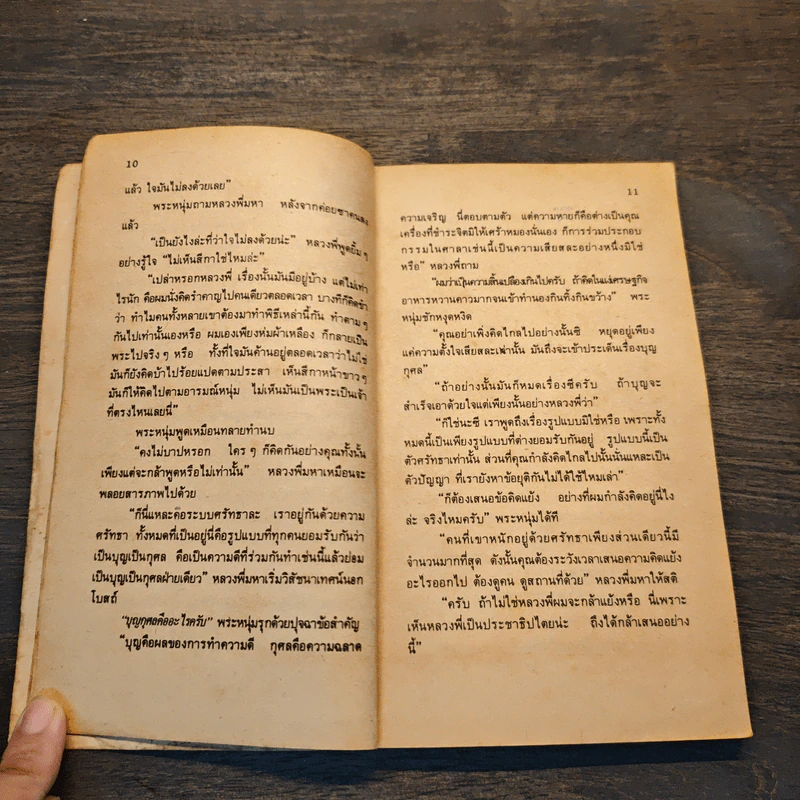 10
แล้ว ใจมันไม่ลงด้วยเลย”
พระหนุ่มถามหลวงพี่มหา หลังจากค่อยซาคนลง
แล้ว
“เป็นยังไงล่ะที่ว่าใจไม่ลงด้วยน่ะ” หลวงพี่พูดยิ้ม ๆ
อย่างรู้ใจ “ไม่เห็นสีกาใช่ไหมล่ะ”
“เปล่าหรอกหลวงพี่ เรื่องนั้นมันมีอยู่บ้าง แต่ไม่เท่า
ไรนัก คือผมนั่งคิดรำคาญไปคนเดียวตลอดเวลา บางทีก็คิดขำ
ว่า ทำไมคนทั้งหลายเขาต้องมาทำพิธีเหล่านี้กัน ทำตาม ๆ
กันไปเท่านั้นเองหรือ ผมเองเพียงห่มผ้าเหลือง ก็กลายเป็น
พระไปจริง ๆ หรือ ทั้งที่ใจมันค้านอยู่ตลอดเวลาว่าไม่ใช่
มันก็ยังคิดบ้าไปร้อยแปดตามประสา เห็นสีกาหน้าขาว ๆ
มันก็ให้คิดไปตามอารมณ์หนุ่ม ไม่เห็นมันเป็นพระเป็นเจ้า
ที่ตรงไหนเลยนี่”
พระหนุ่มพูดเหมือนทลายทำนบ
“คงไม่บาปหรอก ใคร ๆ ก็คิดกันอย่างคุณทั้งนั้น
เพียงแต่จะกล้าพูดหรือไม่เท่านั้น” หลวงพี่มหาเหมือนจะ
พลอยสารภาพไปด้วย
“ก็นี่แหละคือระบบศรัทธาละ เราอยู่กันด้วยความ
ศรัทธา ทั้งหมดที่เป็นอยู่นี่คือรูปแบบที่ทุกคนยอมรับกันว่า
เป็นบุญเป็นกุศล คือเป็นความดีที่ร่วมกันทำเช่นนี้แล้วย่อม
เป็นบุญเป็นกุศลฝ่ายเดียว” หลวงพี่มหาเริ่มวิสัชนาเทศน์นอก
โบสถ์
“บุญกุศลคืออะไรครับ” พระหนุ่มรุกด้วยปุจฉาข้อสำคัญ
“บุญคือผลของการทำความดี กุศลคือความฉลาด
11
ความเจริญ นี่ตอบตามตัว แต่ความหายก็คือต่างเป็นคุณ
เครื่องที่ชำระจิตมิให้เศร้าหมองนั่นเอง ก็การร่วมประกอบ
กรรมในศาลาเช่นนี้เป็นความเสียสละอย่างหนึ่งมิใช่
หรือ” หลวงพี่ถาม
“ผมว่าเป็นความสิ้นเปลืองเกินไปครับ ถ้าคิดในแง่เศรษฐกิจ
อาหารหวานคาวมากจนเข้าทำนองกินทิ้งกินขว้าง” พระ
หนุ่มชักหงุดหงิด
“คุณอย่าเพิ่งคิดไกลไปอย่างนั้นซี หยุดอยู่เพียง
แค่ความตั้งใจเสียสละเท่านั้น มันถึงจะเข้าประเด็นเรื่องบุญ
กุศล”
“ถ้าอย่างนั้นมันก็หมดเรื่องซีครับ ถ้าบุญจะ
สำเร็จเอาด้วยใจแต่เพียงนั้นอย่างหลวงพี่ว่า”
“ก็ใช่นะซี เราพูดถึงเรื่องรูปแบบมิใช่หรือ เพราะทั้ง
หมดนี้เป็นเพียงรูปแบบที่ต่างยอมรับกันอยู่ รูปแบบนี้เป็น
ตัวศรัทธาเท่านั้น ส่วนที่คุณกำลังคิดไกลไปนั้นนั่นแหละเป็น
ตัวปัญญา ที่เรายังหาข้อยุติกันไม่ได้ใช้ไหมเล่า”
“ก็ต้องเสนอข้อคิดแย้ง อย่างที่ผมกำลังคิดอยู่นี่ไง
ล่ะ จริงไหมครับ” พระหนุ่มได้ที
“คนที่เขาหนักอยู่ด้วยศรัทธาเพียงส่วนเดียวนี้มี
จำนวนมากที่สุด ดังนั้นคุณต้องระวังเวลาเสนอความคิดแย้ง
อะไรออกไป ต้องดูคน ดูสถานที่ด้วย” หลวงพี่มหาให้สติ
“ครับ ถ้าไม่ใช่หลวงพี่ผมจะกล้าแย้งหรือ นี่เพราะ
เห็นหลวงพี่เป็นประชาธิปไตยน่ะ ถึงได้กล้าเสนออย่าง
นี้”